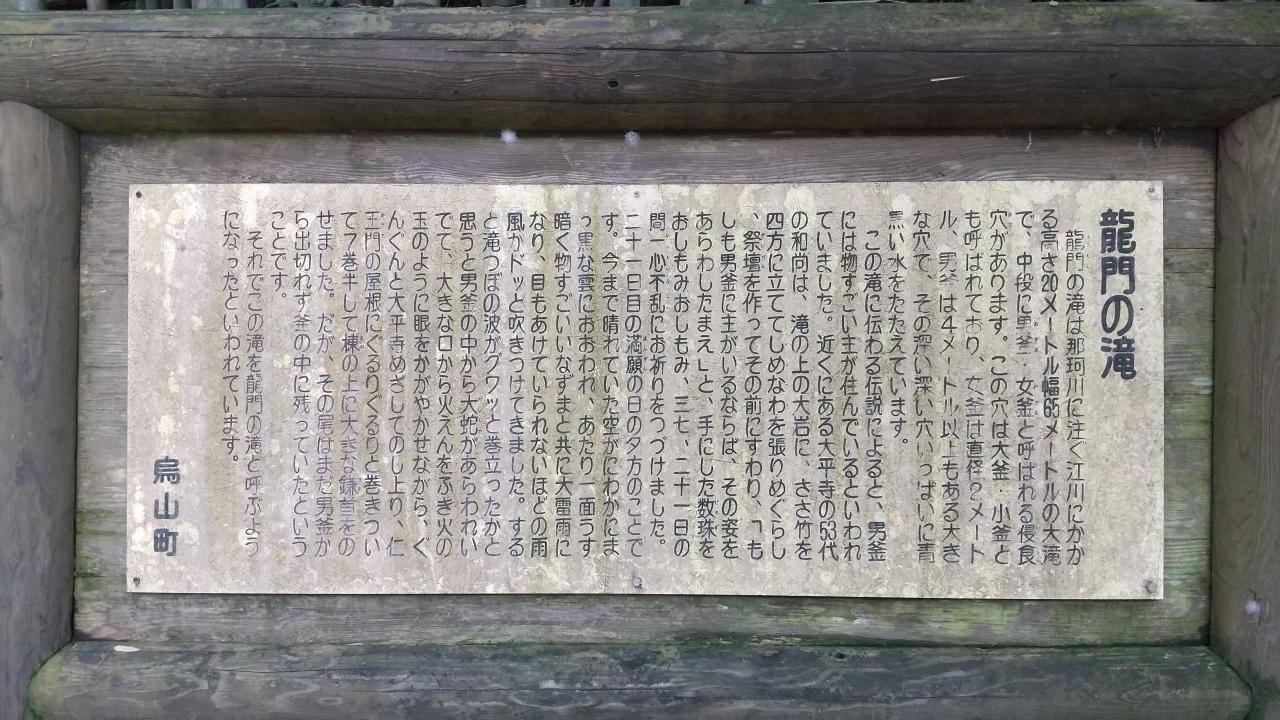 龍門の滝
龍門の滝は那珂川に注ぐ江川にかか
る高さ20メートル幅65メートルの大滝
で、中役に男釜・女釜と呼ばれる侵食
穴があります。この穴は大釜・小釜と
も呼ばれており、女釜は直径2メート
ル、男釜は4メートル以上もある大き
な穴で、その深い深い穴いっぱいに青
黒い水をたたえています。
この滝に伝わる伝説によると、男釜
には物すごい主が住んでいるといわれ
ていました。近くにある大平寺の53代
の和尚は、滝の上の大岩に、ささ竹を
四方に立ててしめなわを張りめぐらし
、祭壇を作ってその前にすわり、「も
しも男釜に主がいるならば、その姿を
あらわしたまえ」と、手にした数珠を
おしもみおしもみ、三七、二十一日の
間一心不乱にお祈りをつづけました。
二十一日目の満願の日の夕方のことで
す。今まで晴れていた空がにわかにま
っ黒な雲におおわれ、あたり一面うす
暗く物すごいいなずまと共に大雷雨に
なり、目もあけていられないほどの雨
風がドッと吹きつけてきました。する
と滝つぼの波がグワッと巻立ったかと
思うと男釜の中から大蛇があらわれい
でて、大きな口から火えんをふき火の
玉のように眼をかがやかせながら、ぐ
んぐんと大平寺めざしてのし上り、仁
王門の屋根にぐるりぐるりと巻きつい
て7巻半して棟の上に大きな鎌首をの
せました。だが、その尾はまた男釜か
ら出切れず釜の中に残っていたという
ことです。
それでこの滝を龍門の滝と呼ぶよう
になったといわれています。
烏山町